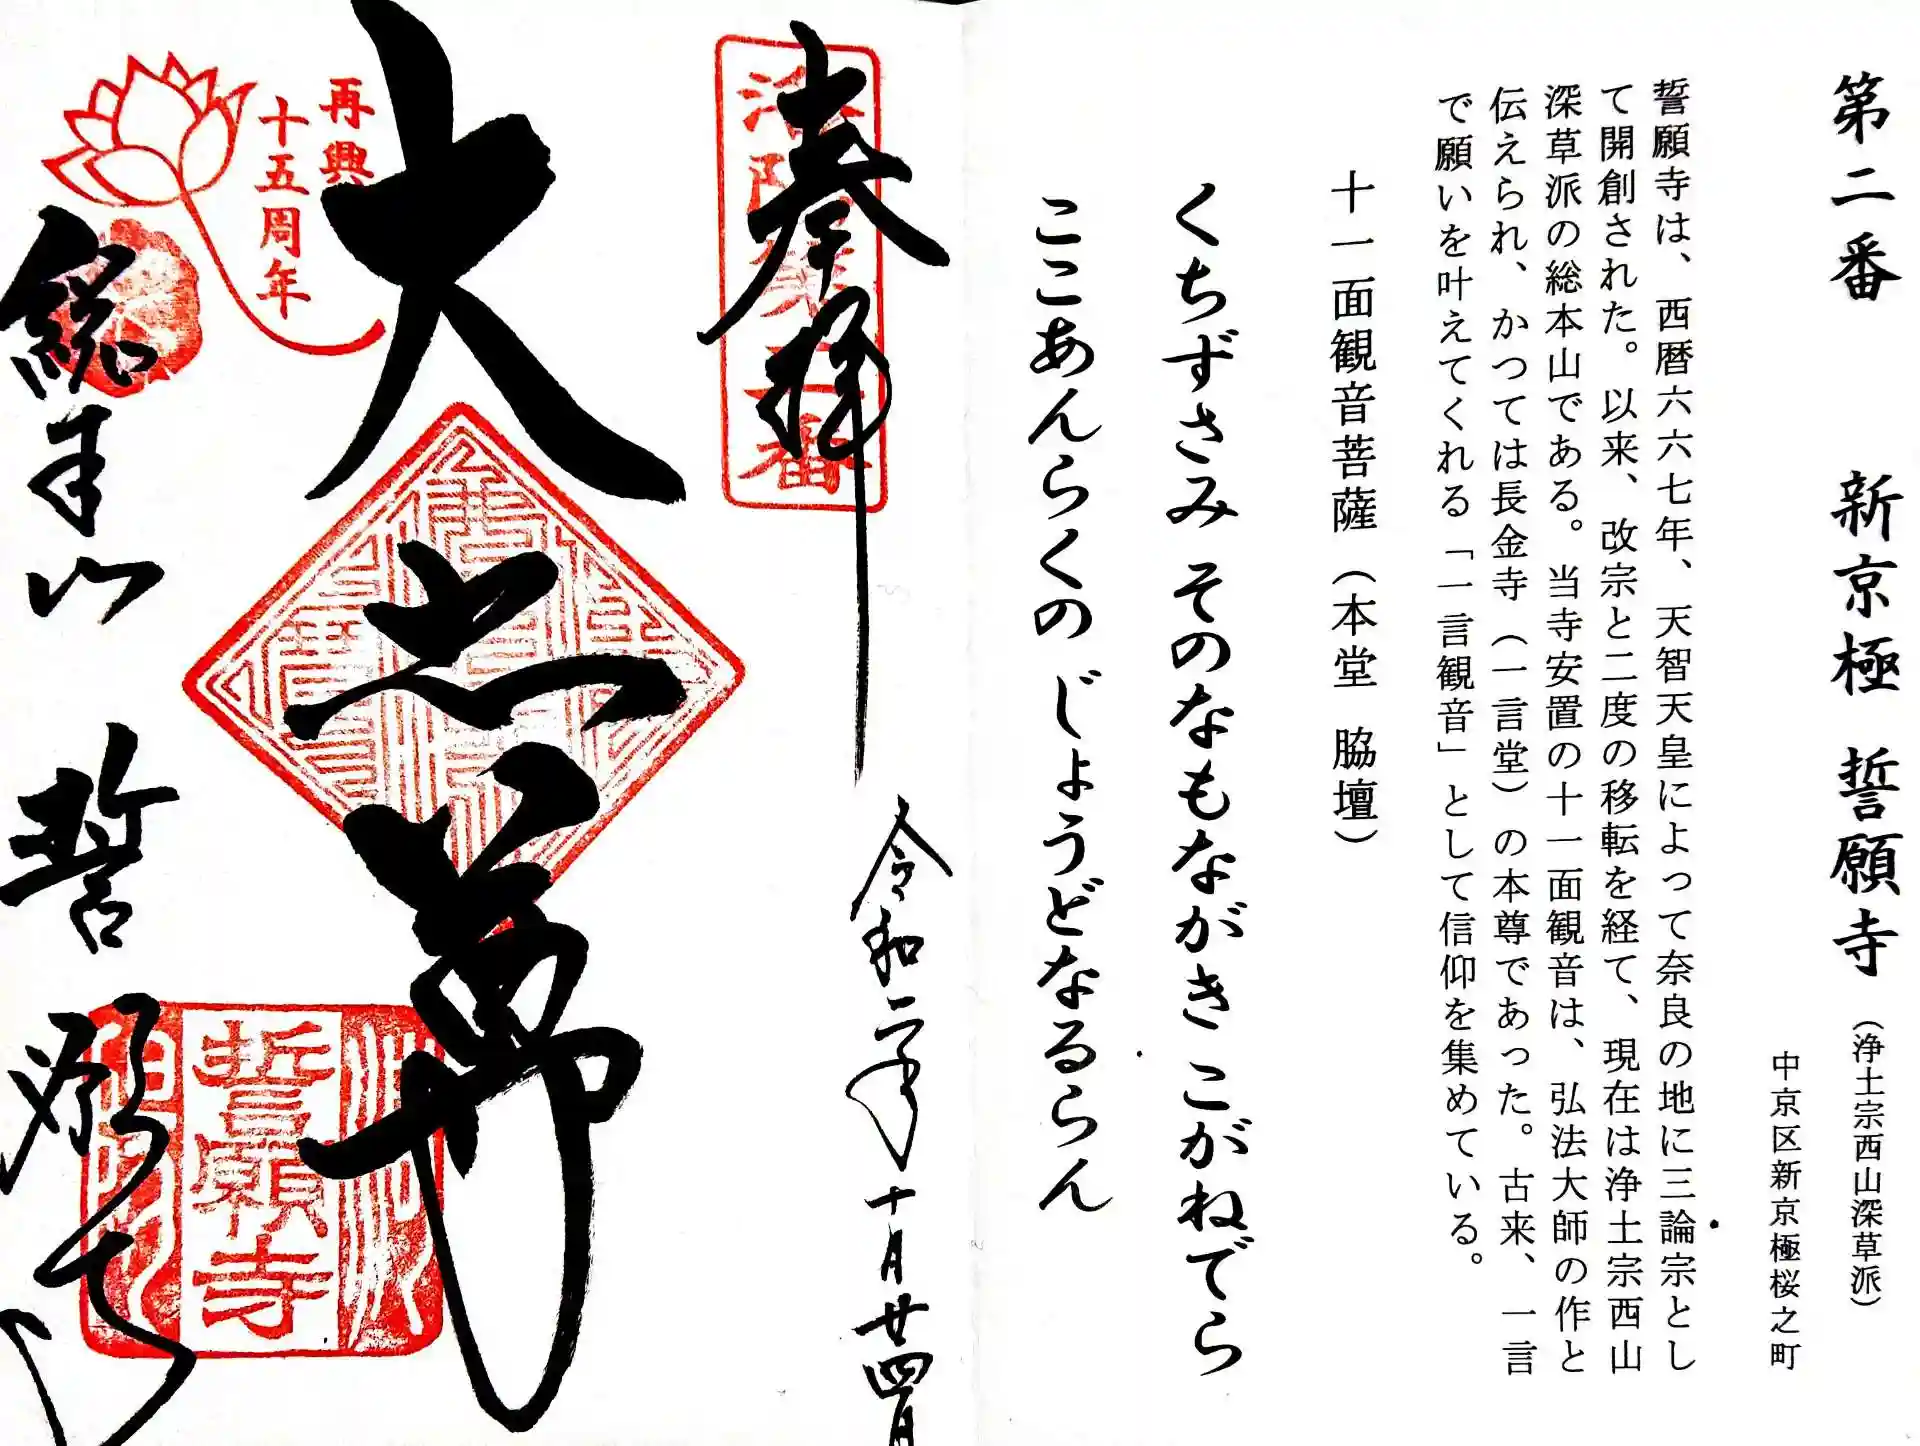 第二番　新京極　誓願寺（浄土宗西山深草派）
中京区新京極桜之町
誓願寺は、西暦六六七年、天智天皇によって奈良の地に三論宗とし
て開創された。以来、改宗と二度の移転を経て、現在は浄土宗西山
深草派の総本山である。当寺安置の十一面観音は、弘法大師の作と
伝えられ、かつては長金寺（一言堂）の本尊であった。古来、一言
で願いを叶えてくれる「一言観音」として信仰を集めている。
十一面観音菩薩（本堂　脇壇）
くちずさみ そのなもながき こがねでら
ここあんらくの じょうどなるらん
奉拝
洛陽第二番
令和二年十月廿四日
大悲尊
再興
十五周年
総本山　誓願寺
誓願寺